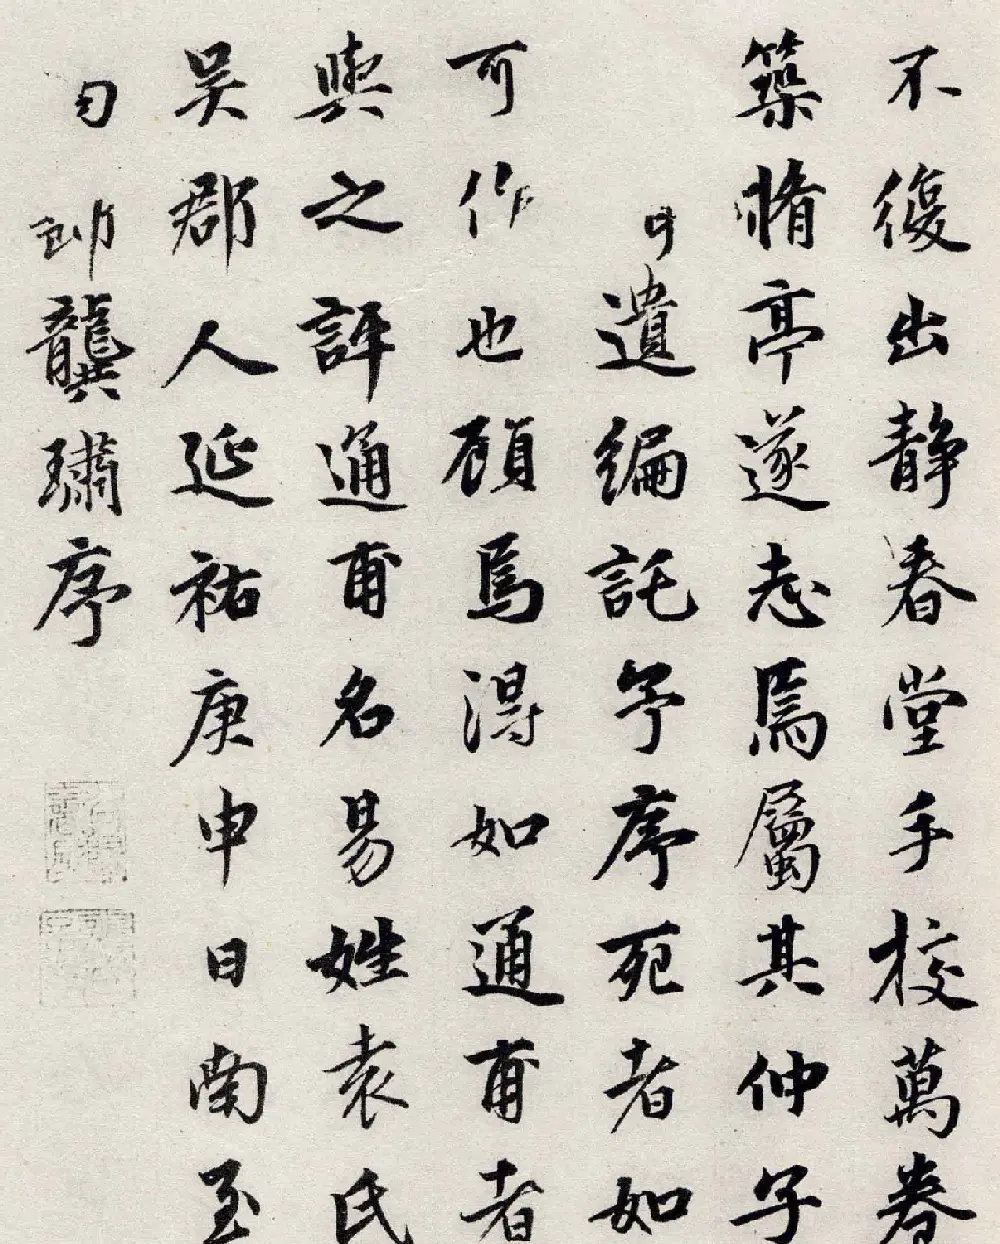 不復出静春堂手校萬卷
築脩亭遂志焉屬其仲子
可遺編託予序死者如
可作也顧焉得如通甫者
與之評通甫名易姓袁氏
吳郡人延祐庚申日南至
句 龔璛序